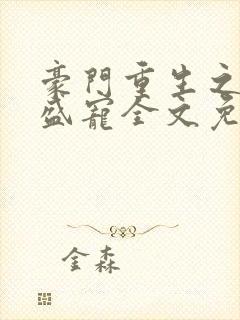 豪門重生之
盛寵全文免
金森